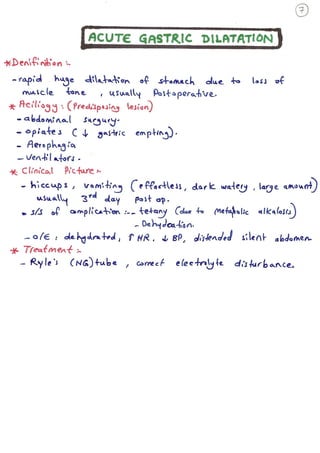 7
ACUTE GASTRIC DILATATION
* Denifinition :-
- rapid huge dilatation of stomach due to loss of
muscle tone , usually Postoperative.
* Aeiliogy : (Predisposing lesion)
- abdominal surgury.
- opiates ( ↓ gastric empting).
- Aerophagia
- Ventilators.
* Clinical Picture :-
- hiccups , vomiting (effortless, dark watery , large amount)
usually 3rd day post op.
- s/s of complication :-- tetany (due to metabolic alkalosis)
- Dehydration.
- o/E : dehydrated, ↑ HR , ↓ BP, distended silent abdomen.
* Treatment :-
- Ryle's (NG) tube , correct electrolyte disturbance.